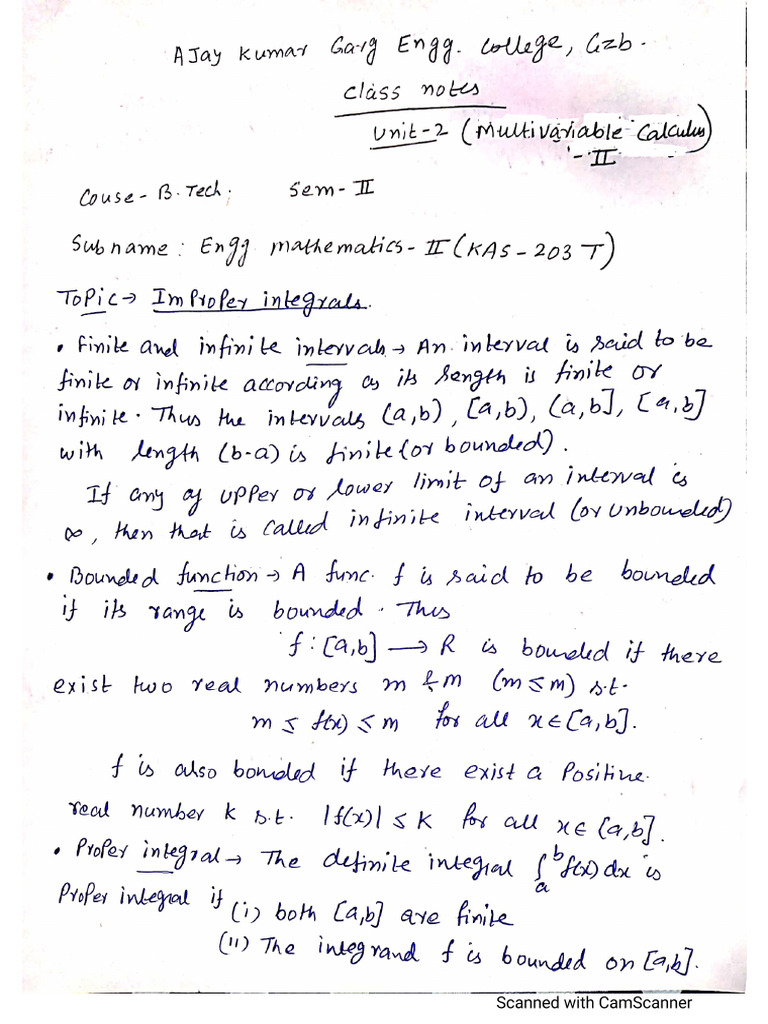 AJay Kumar Garg Engg. College, Gzb.
Class notes
Unit-2 (Multivariable Calculus)
-II
Couse - B.Tech. Sem-II
Sub name : Engg mathematics-II (KAS-203T)
Topic → Improper integrals.
• Finite and infinite intervals → An interval is said to be
finite or infinite according as its length is finite or
infinite. Thus the intervals (a,b), [a,b), (a,b], [a,b]
with length (b-a) is finite (or bounded).
If any of upper or lower limit of an interval is
∞, then that is called infinite interval (or unbounded)
• Bounded function → A func. f is said to be bounded
if its range is bounded. Thus
f : [a,b] → R is bounded if there
exist two real numbers m & M (m ≤ M) s.t.
m ≤ f(x) ≤ M for all x ∈ [a,b].
f is also bonded if there exist a Positive
real number k s.t. |f(x)| ≤ K for all x ∈ [a,b].
• Proper integral → The definite integral ∫ₐᵇ f(x) dx is
Proper integral if (i) both [a,b] are finite
(ii) The integrand f is bounded on [a,b].
Scanned with CamScanner